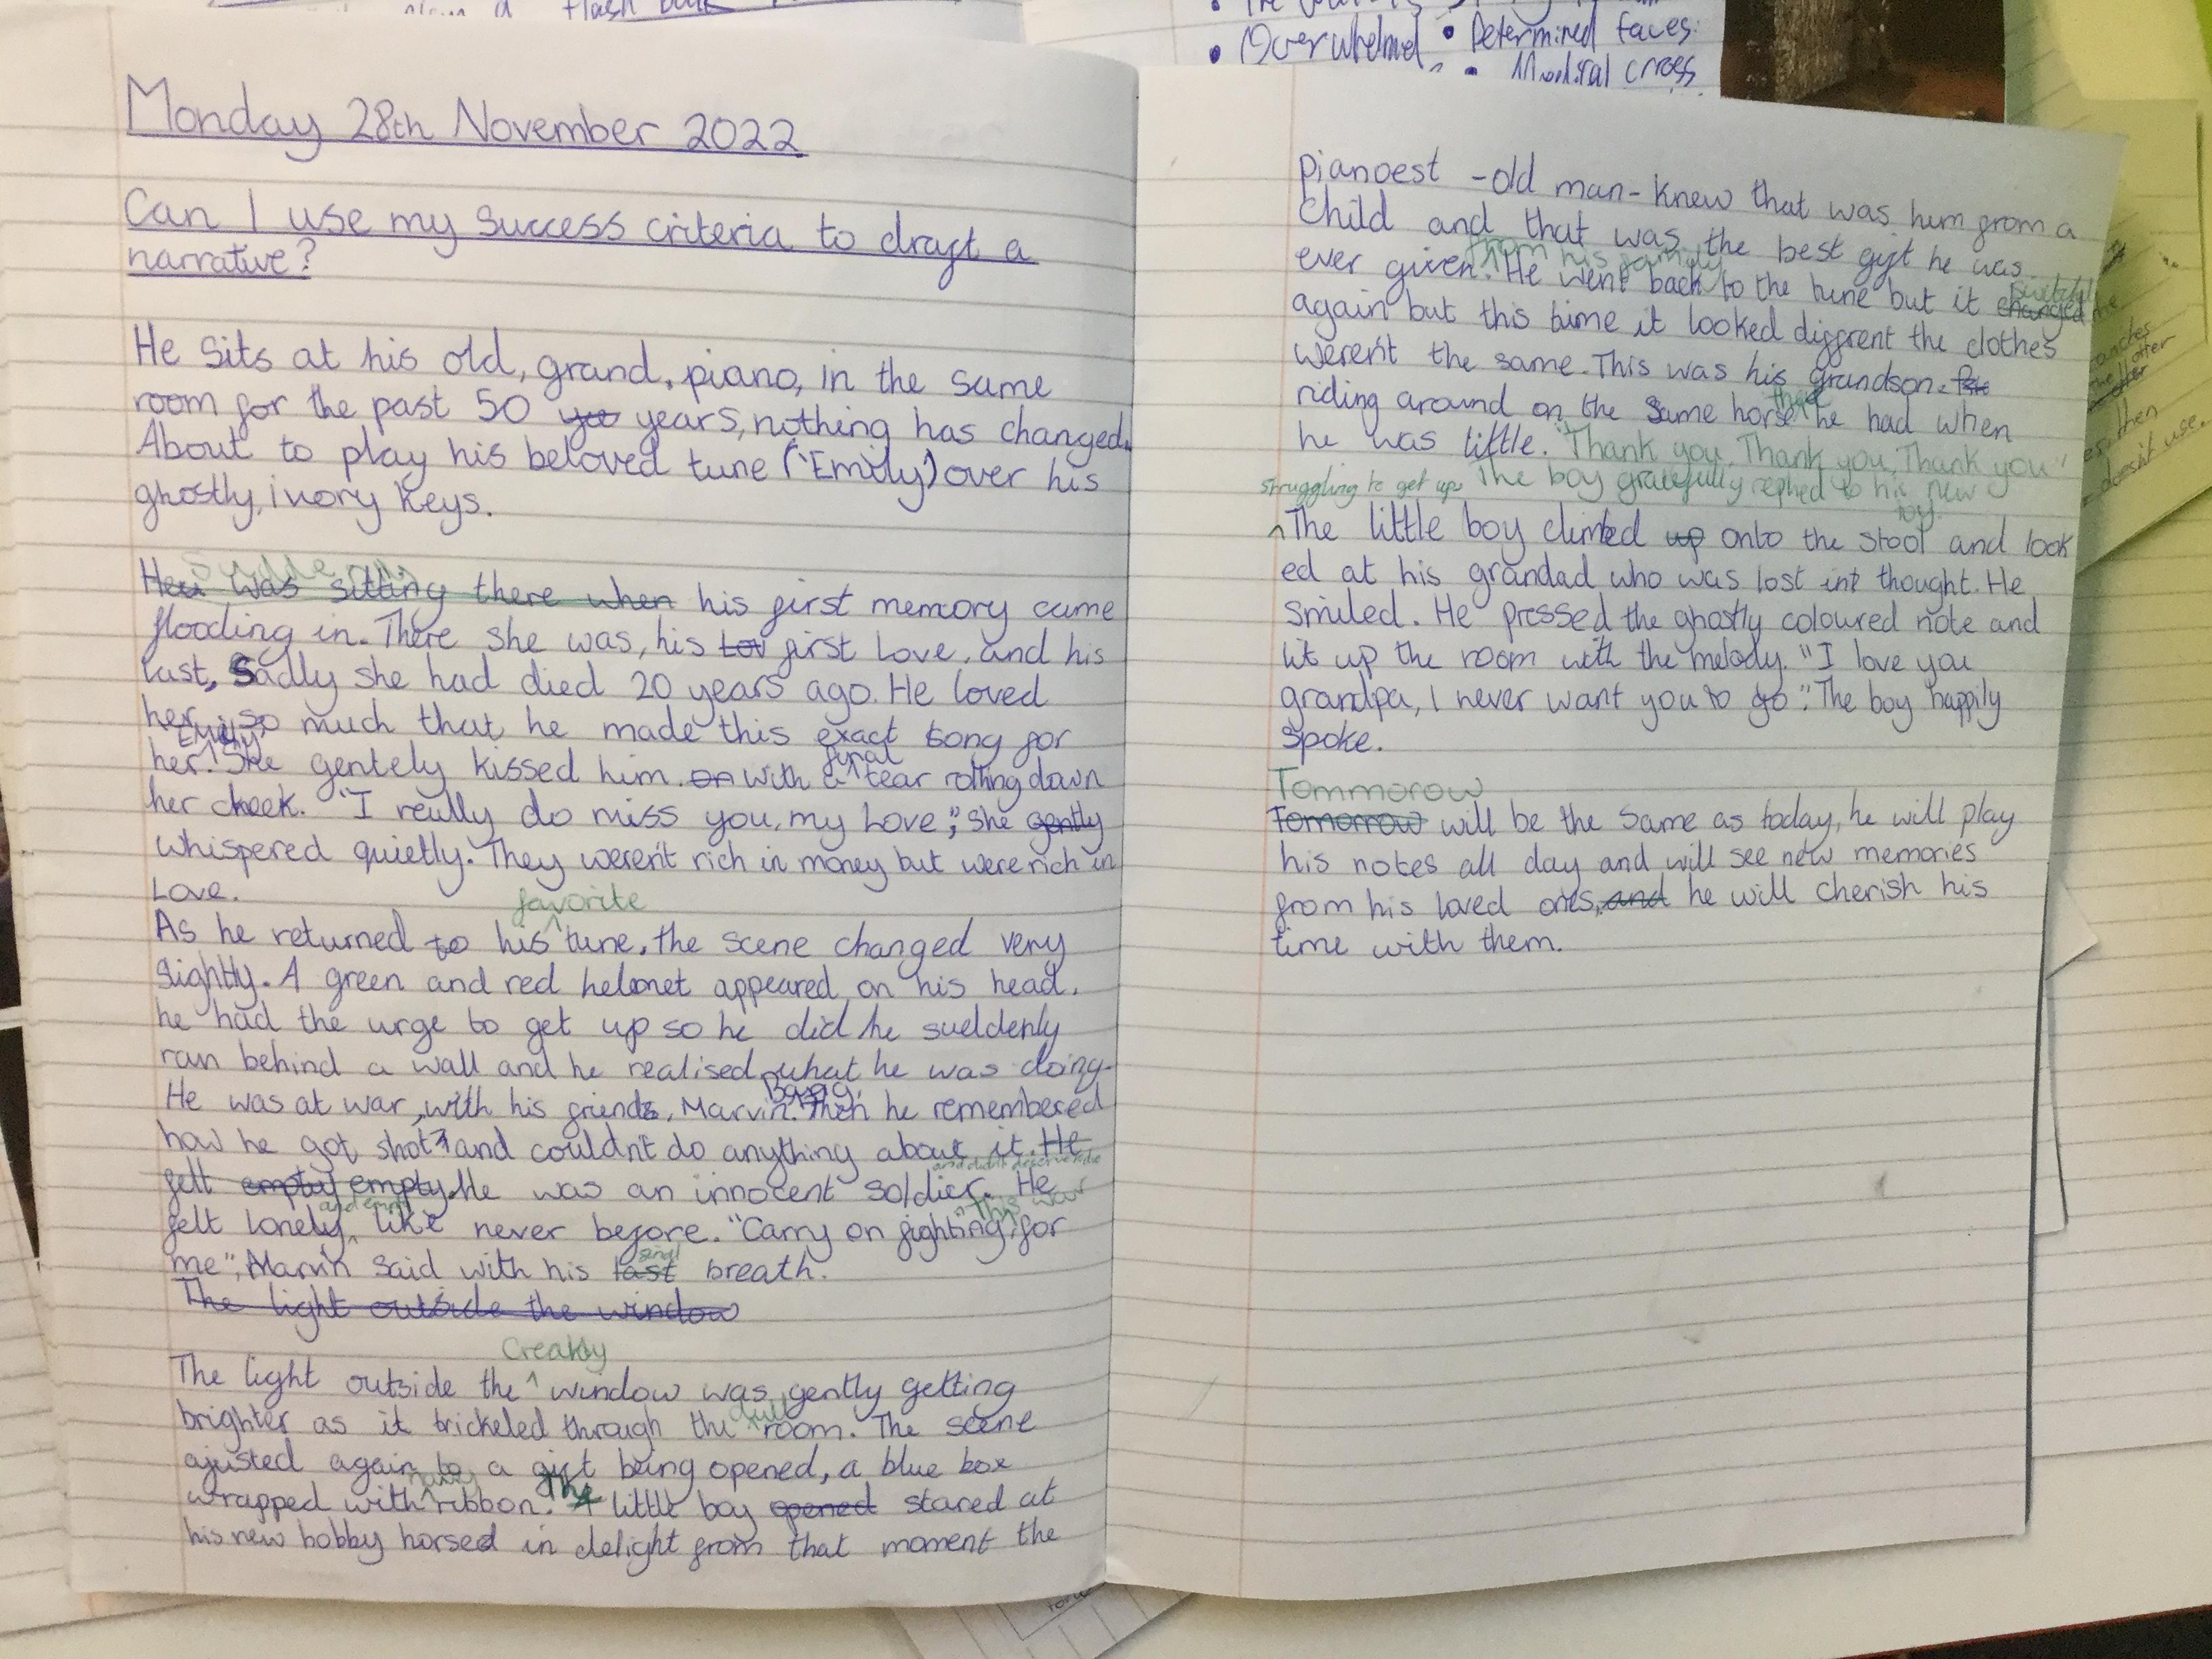 flash back
Overwhelmed
• Determined faces
Monday 28th November 2022
Can I use my success criteria to draft a
narrative?
He sits at his old, grand, piano, in the same
room for the past 50 yea years, nothing has changed.
About to play his beloved tune ('Emily) over his
ghostly, ivory keys.
Suddenly
He was sitting there when his first memory came
flooding in. There she was, his Lov first Love, and his
last, Sadly she had died 20 years ago. He loved
her so much that he made this exact song for
Emily final
her. She gentely kissed him on with a tear rolling down
her cheek. "I really do miss you, my Love," she gently
whispered quietly. They weren't rich in money but were rich in
Love.
favorite
As he returned to his tune, the scene changed very
slightly. A green and red helmet appeared on his head,
he had the urge to get up so he did he sueldenly
ran behind a wall and he realised what he was doing.
Bang,
He was at war, with his friends, Marvin. Then he remembered
how he got shot and couldn't do anything about it. He
and didn't deserve to die
felt empty empty. He was an innocent soldier. He
and empty this war
felt lonely, like never before. "Carry on fighting for
final
me", Marvin said with his last breath.
The light outside the window
Creaky
The light outside the window was gently getting
dull
brighter as it trickeled through the room. The scene
ajusted again to a gift being opened, a blue box
navy The
wrapped with ribbon. A little boy opened stared at
his new hobby horsed in delight from that moment the
pianoest -old man- knew that was him from a
child and that was the best gift he was
from his family
ever given. He went back to the tune but it changed
again but this time it looked diffrent the clothes
weren't the same. This was his grandson.
that
riding around on the same horse he had when
he was little. "Thank you, Thank you, Thank you"
struggling to get up, The boy gratefully replied to his new
toy.
The little boy climbed up onto the stool and look
ed at his grandad who was lost in thought. He
smiled. He pressed the ghostly coloured note and
lit up the room with the melody. "I love you
grandpa, I never want you to go". The boy happily
spoke.
Tommorow
Tomorrow will be the same as today, he will play
his notes all day and will see new memories
from his loved ones, and he will cherish his
time with them.
then
doesn't use.